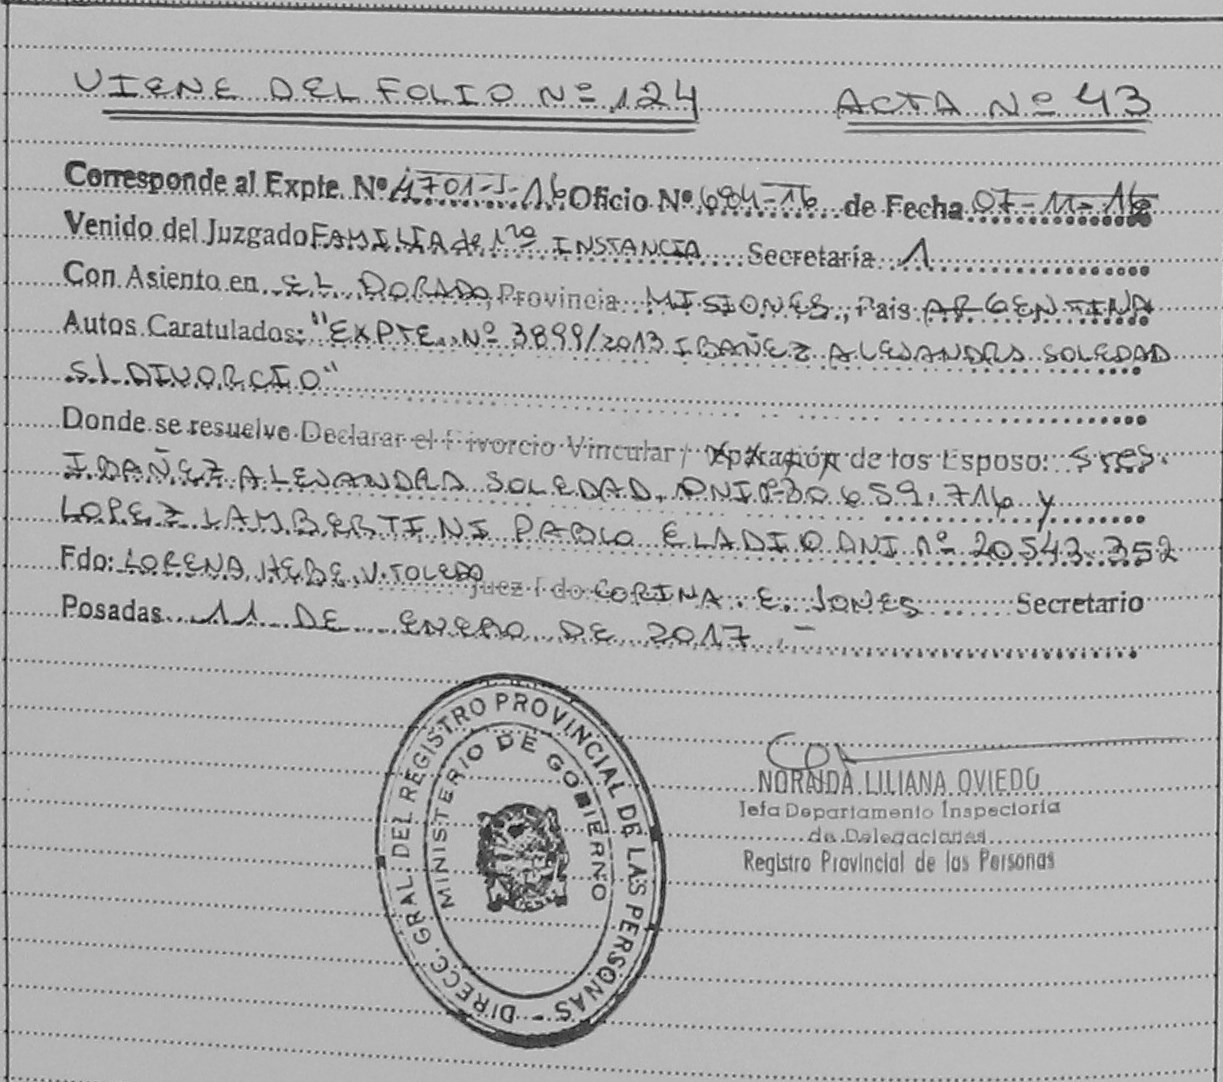 VIENE DEL FOLIO Nº 124 ACTA Nº 43
Corresponde al Expte. Nº 4701-I-16 Oficio Nº 684-16 de Fecha 07-11-16
Venido del Juzgado FAMILIA de 1ra INSTANCIA Secretaría 1
Con Asiento en EL DORADO, Provincia MISIONES, Pais ARGENTINA
Autos Caratulados: "EXPTE. Nº 3899/2013 IBAÑEZ ALEJANDRA SOLEDAD
S/ DIVORCIO"
Donde se resuelve Declarar el Divorcio Vincular / de los Esposo: Sres.
IBAÑEZ ALEJANDRA SOLEDAD, DNI Nº 30.659.716 y
LOPEZ LAMBERTINI PABLO ELADIO DNI Nº 20543.352
Fdo: LORENA HEBE V. TOLEDO Juez Fdo CORINA. E. JONES Secretario
Posadas 11 DE ENERO DE 2017.-
DIRECC. GRAL. DEL REGISTRO PROVINCIAL DE LAS PERSONAS -
MINISTERIO DE GOBIERNO
NORAIDA LILIANA OVIEDO
Jefa Departamento Inspectoria
de Delegaciones
Registro Provincial de las Personas